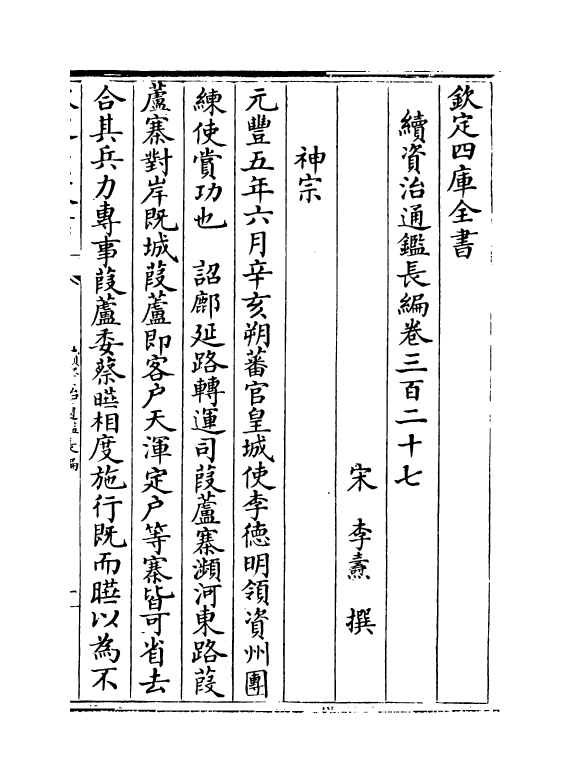 欽定四庫全書
續資治通鑑長編卷三百二十七
宋 李燾 撰
神宗
元豐五年六月辛亥朔蕃官皇城使李德明領資州團
練使賞功也 詔鄜延路轉運司葭蘆寨瀕河東路葭
蘆寨對岸既城葭蘆即客户天渾定户等寨皆可省去
合其兵力專事葭蘆委蔡曚相度施行既而曚以為不